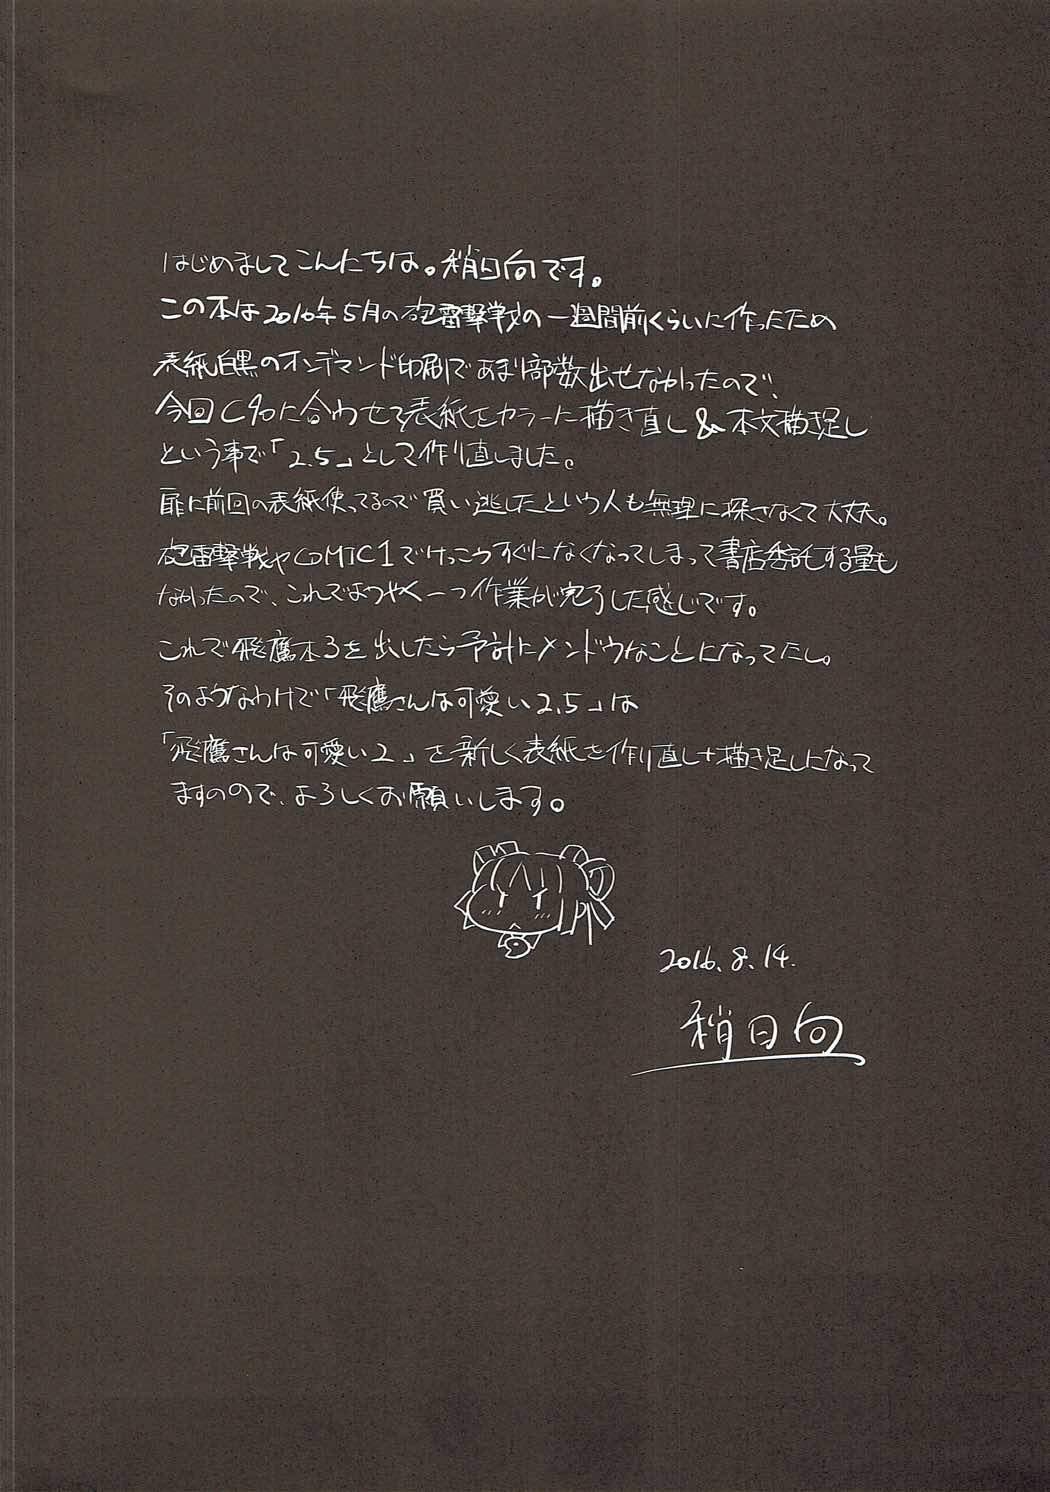 はじめましてこんにちは。稍日向です。
この本は2016年5月の砲雷撃戦の一週間前くらいに作ったため
表紙白黒のオンデマンド印刷であまり部数出せなかったので、
今回C90に合わせて表紙をカラーに描き直し&本文描き足し
という事で「2.5」として作り直しました。
扉に前回の表紙使ってるので買い逃したという人も無理に探さなくて大丈夫。
砲雷撃戦やCOMIC1でけっこうすぐになくなってしまって書店委託する量も
なかったので、これでようやく一つ作業が完了した感じです。
これで飛鷹本3を出したら予計にメンドウなことになってたし。
そのようなわけで「飛鷹さんは可愛い2.5」は
「飛鷹さんは可愛い2」を新しく表紙を作り直し+描き足しになって
ますのので、よろしくお願いします。
2016.8.14.
稍日向